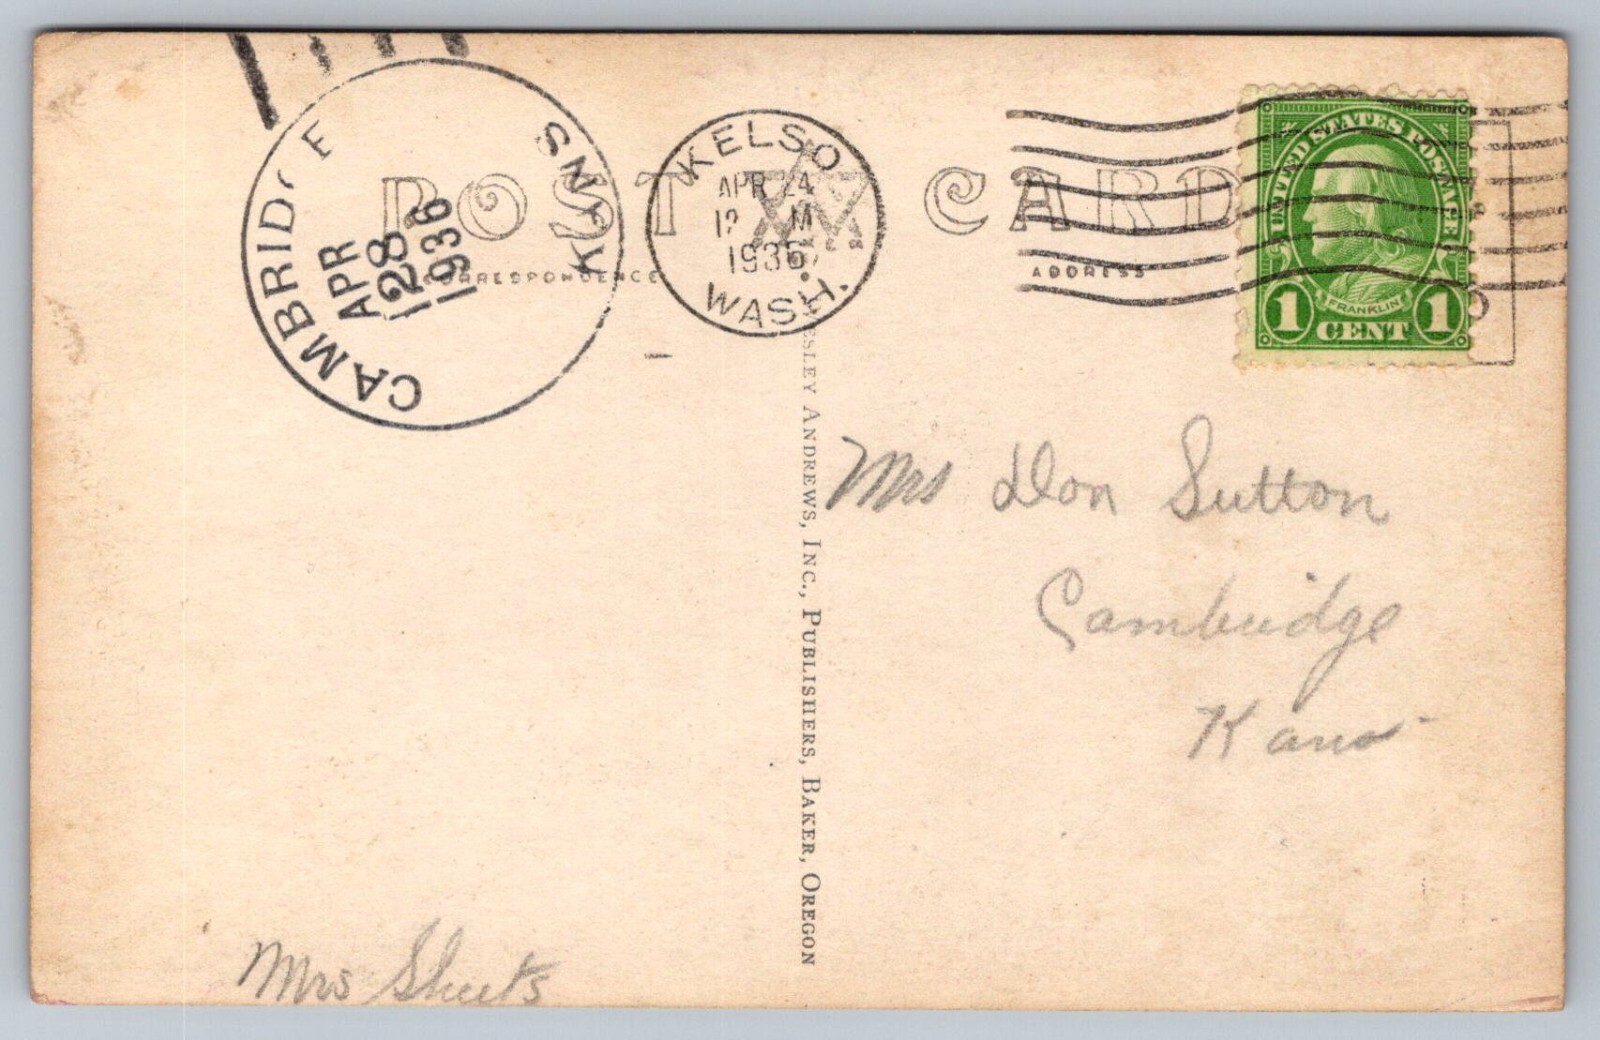 CAMBRIDGE KANS
APR
28
1936
KELSO,
APR 24
12 M
1936
WASH.
POST CARD
CORRESPONDENCE
ADDRESS
UNITED STATES POSTAGE
FRANKLIN
1 CENT 1
WESLEY ANDREWS, INC., PUBLISHERS, BAKER, OREGON
Mrs Don Sutton
Cambridge
Kans
Mrs Sheets